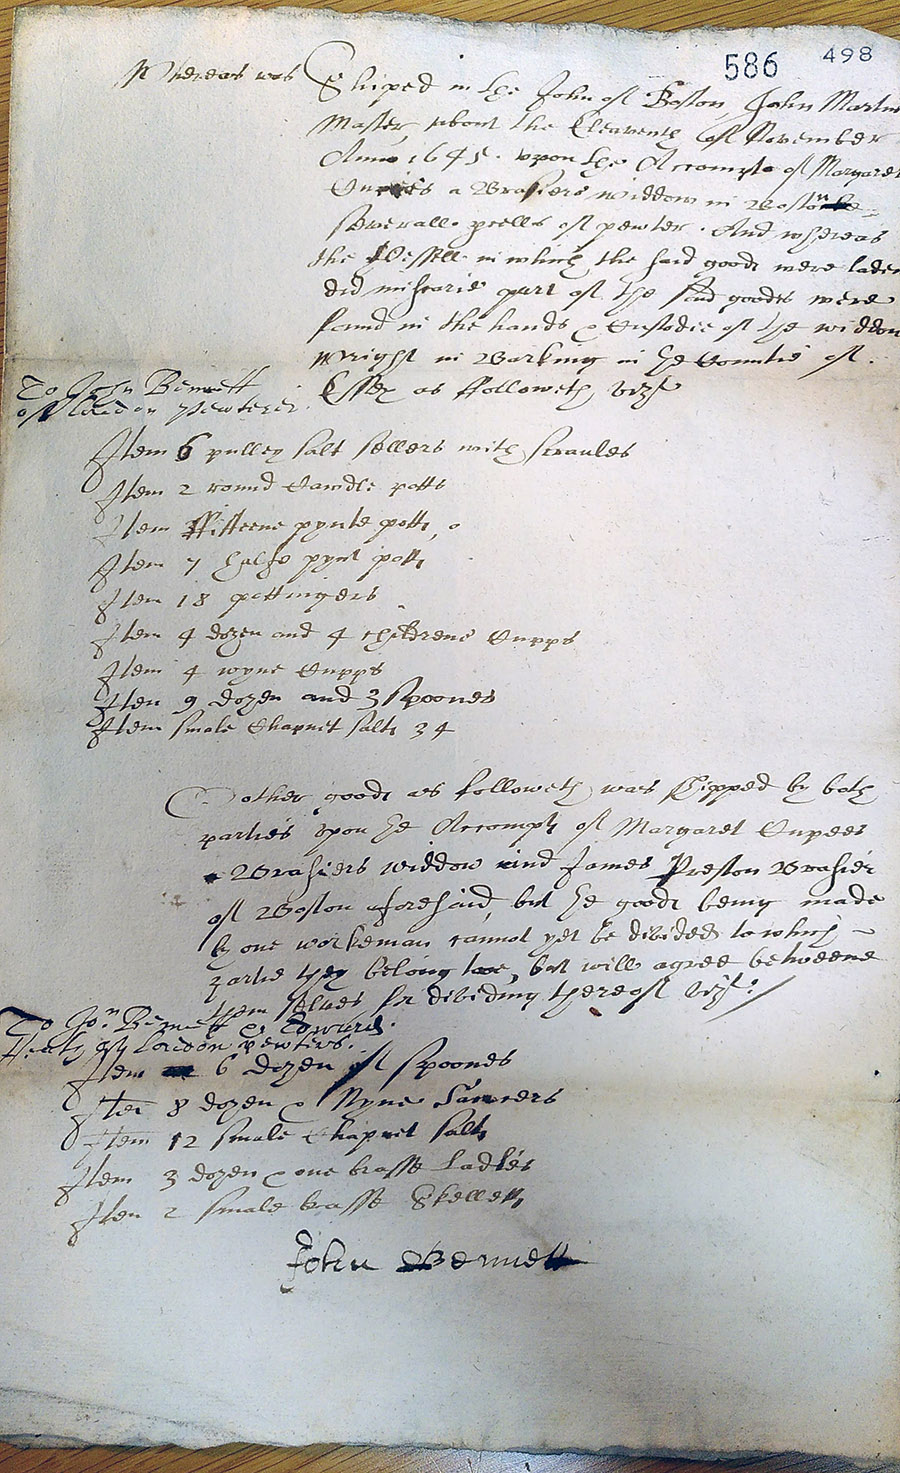 586 498
Whereas was Shiped in the John of Boston, John Martin
Master, about the Eleaventh of November
Anno 1645. upon the Accompte of Margaret
a Brasiers widdow in Boston
severall pcells of pewter. And whereas
the Vessell in which the said goods were laden
did miscarie part of the said goodes were
found in the hands & Custodie of the widdow
Wright in Barking in the Countie of
Essex as ffolloweth vizt
To John Bennett
of London Pewterer
Item 6 pulley salt sellers with scraules
Item 2 round Cawdle potts
Item ffifteene pynte potts
Item 7 halfe pynt potts
Item 18 pottingers
Item 4 dozen and 4 childrens Cupps
Item 4 wyne Cupps
Item 9 dozen and 3 spoones
Item smale Chapnet salts 34
other goods as followeth was shipped by both
parties upon the Accompt of Margaret Cupees
a Brasiers widdow and James Preston Brasier
of Boston foresaid, but the goods being made
by one workeman cannot yet be divided to which
partie they belong toe, but will agree betweene
them selves for dividing thereof vizt:
To Jon Bennett & Edward
of London pewters.
Item 6 dozen of spoones
Item 8 dozen & Nyne Sawcers
Item 12 smale Chapnet salts
Item 3 dozen & one brasse Ladles
Item 2 smale brasse Skelletts
John Bennett